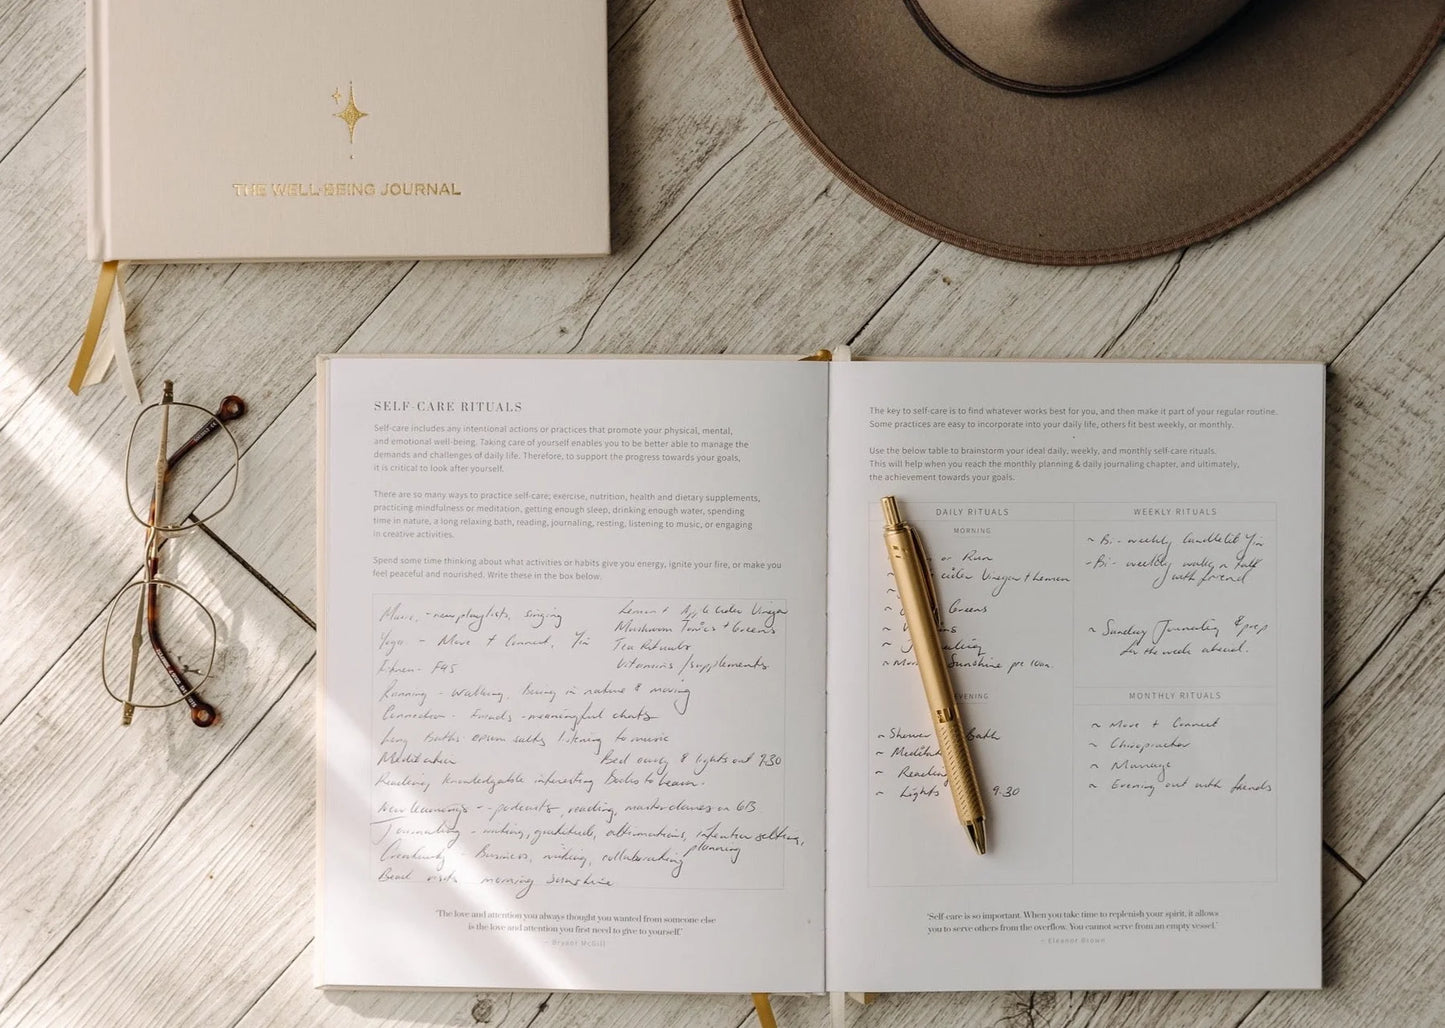 THE WELL-BEING JOURNAL
SELF-CARE RITUALS
Self-care includes any intentional actions or practices that promote your physical, mental,
and emotional well-being. Taking care of yourself enables you to be better able to manage the
demands and challenges of daily life. Therefore, to support the progress towards your goals,
it is critical to look after yourself.
There are so many ways to practice self-care; exercise, nutrition, health and dietary supplements,
practicing mindfulness or meditation, getting enough sleep, drinking enough water, spending
time in nature, a long relaxing bath, reading, journaling, resting, listening to music, or engaging
in creative activities.
Spend some time thinking about what activities or habits give you energy, ignite your fire, or make you
feel peaceful and nourished. Write these in the box below.
Music - new playlists, singing
Yoga - Move + Connect, Yin
Fitness - F45
Running - walking, Being in nature & moving
Connection - Friends - meaningful chats
Long Baths epsom salts listening to music
Meditation
Reading knowledgable interesting Books to learn.
New learnings - podcasts, reading, masterclasses on
Journalling - writing, gratitude, affirmations, intention setting,
planning
Creativity - Business, writing, collaborating
Beach visits morning Sunshine
Lemon + Apple Cider Vinegar
Mushroom Tonics + Greens
Tea Rituals
Vitamins / supplements
Bed early & lights out 9.30
"The love and attention you always thought you wanted from someone else
is the love and attention you first need to give to yourself."
~ Bryant McGill
The key to self-care is to find whatever works best for you, and then make it part of your regular routine.
Some practices are easy to incorporate into your daily life, others fit best weekly, or monthly.
Use the below table to brainstorm your ideal daily, weekly, and monthly self-care rituals.
This will help when you reach the monthly planning & daily journaling chapter, and ultimately,
the achievement towards your goals.
DAILY RITUALS
MORNING
or Run
cider Vinegar + Lemon
Greens
~ Sunshine pre 10am.
EVENING
~ Shower Bath
~ Meditat
~ Reading
~ Lights 9.30
WEEKLY RITUALS
~ Bi-weekly Candlelit Yin
- Bi-weekly walk n talk
with friend
~ Sunday Journaling & prep
for the week ahead.
MONTHLY RITUALS
~ Move + Connect
~ Chiropractor
~ Massage
~ Evening out with friends
"Self-care is so important. When you take time to replenish your spirit, it allows
you to serve others from the overflow. You cannot serve from an empty vessel."
~ Eleanor Brown